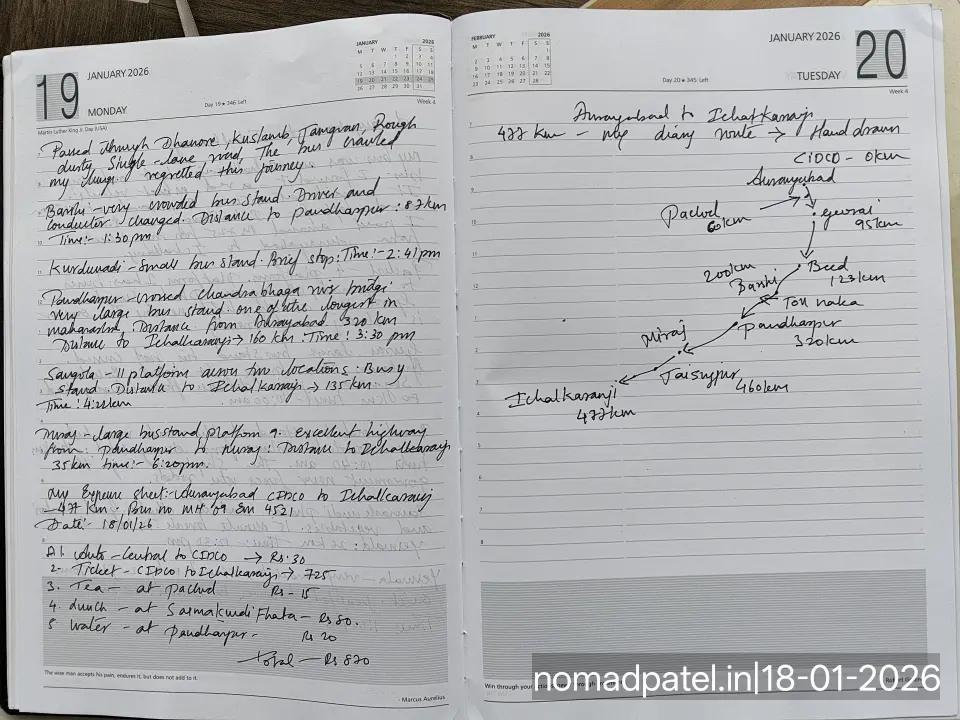 19
JANUARY 2026
MONDAY
Martin Luther King Jr. Day (USA)
Day 19 ★ 346 Left
Week 4
JANUARY 2026
M T W T F S S
1 2 3 4
5 6 7 8 9 10 11
12 13 14 15 16 17 18
19 20 21 22 23 24 25
26 27 28 29 30 31
Passed through Dhanore, Kuslamb, Tamgvan, Rough
dusty, Single-lane road, The bus crawled
my lungs regretted this journey
Barshi - very crowded bus stand. Driver and
conductor changed. Distance to pandharpur : 87km
Time:- 1:30pm
Kurduwadi - Small bus stand. Brief stop: Time:- 2:41pm
Pandharpur - crossed chandrabhaga river bridge
very large bus stand one of the longest in
maharashtra. Distance from Aurayabad 320 km
Distance to Ichalkaranji → 160 km. Time: 3:30 pm
Sangola - 11 platform across two locations. Busy
Stand. Distance to Ichalkaranji → 135km.
Time: 4:22km
Miraj - large bus stand, platform 9. Excellent highway
from pandharpur to Miraj: Distance to Ichalkaranji
35 km time:- 6:20pm.
my Expense sheet:- Aurayabad CIDCO to Ichalkaranji
- 477 km. Bus no MH 09 Em 4521
Date:- 18/01/26
A1. Auto - Central to CIDCO → Rs. 30
2. Ticket - CIDCO to Ichalkaranji → 725
3. Tea - at pachod Rs - 15
4. Lunch - at Sarmakundi Fhata - Rs 80.
5 water - at pandharpur - Rs 20
Total - Rs 870
The wise man accepts his pain, endures it, but does not add to it.
- Marcus Aurelius
FEBRUARY 2026
M T W T F S S
1
2 3 4 5 6 7 8
9 10 11 12 13 14 15
16 17 18 19 20 21 22
23 24 25 26 27 28
JANUARY 2026
20
TUESDAY
Day 20 ★ 345 Left
Week 4
Aurayabad to Ichalkaranji
477 km - my diary route → Hand drawn
CIDCO - 0km
Aurayabad
Pachod
60km
georai
95km
Beed
123km
200km
Barshi
Ton naka
Pandharpur
320km
Miraj
Jaisingpur
460km
Ichalkaranji
477km
Win through your
nomadpatel.in|18-01-2026